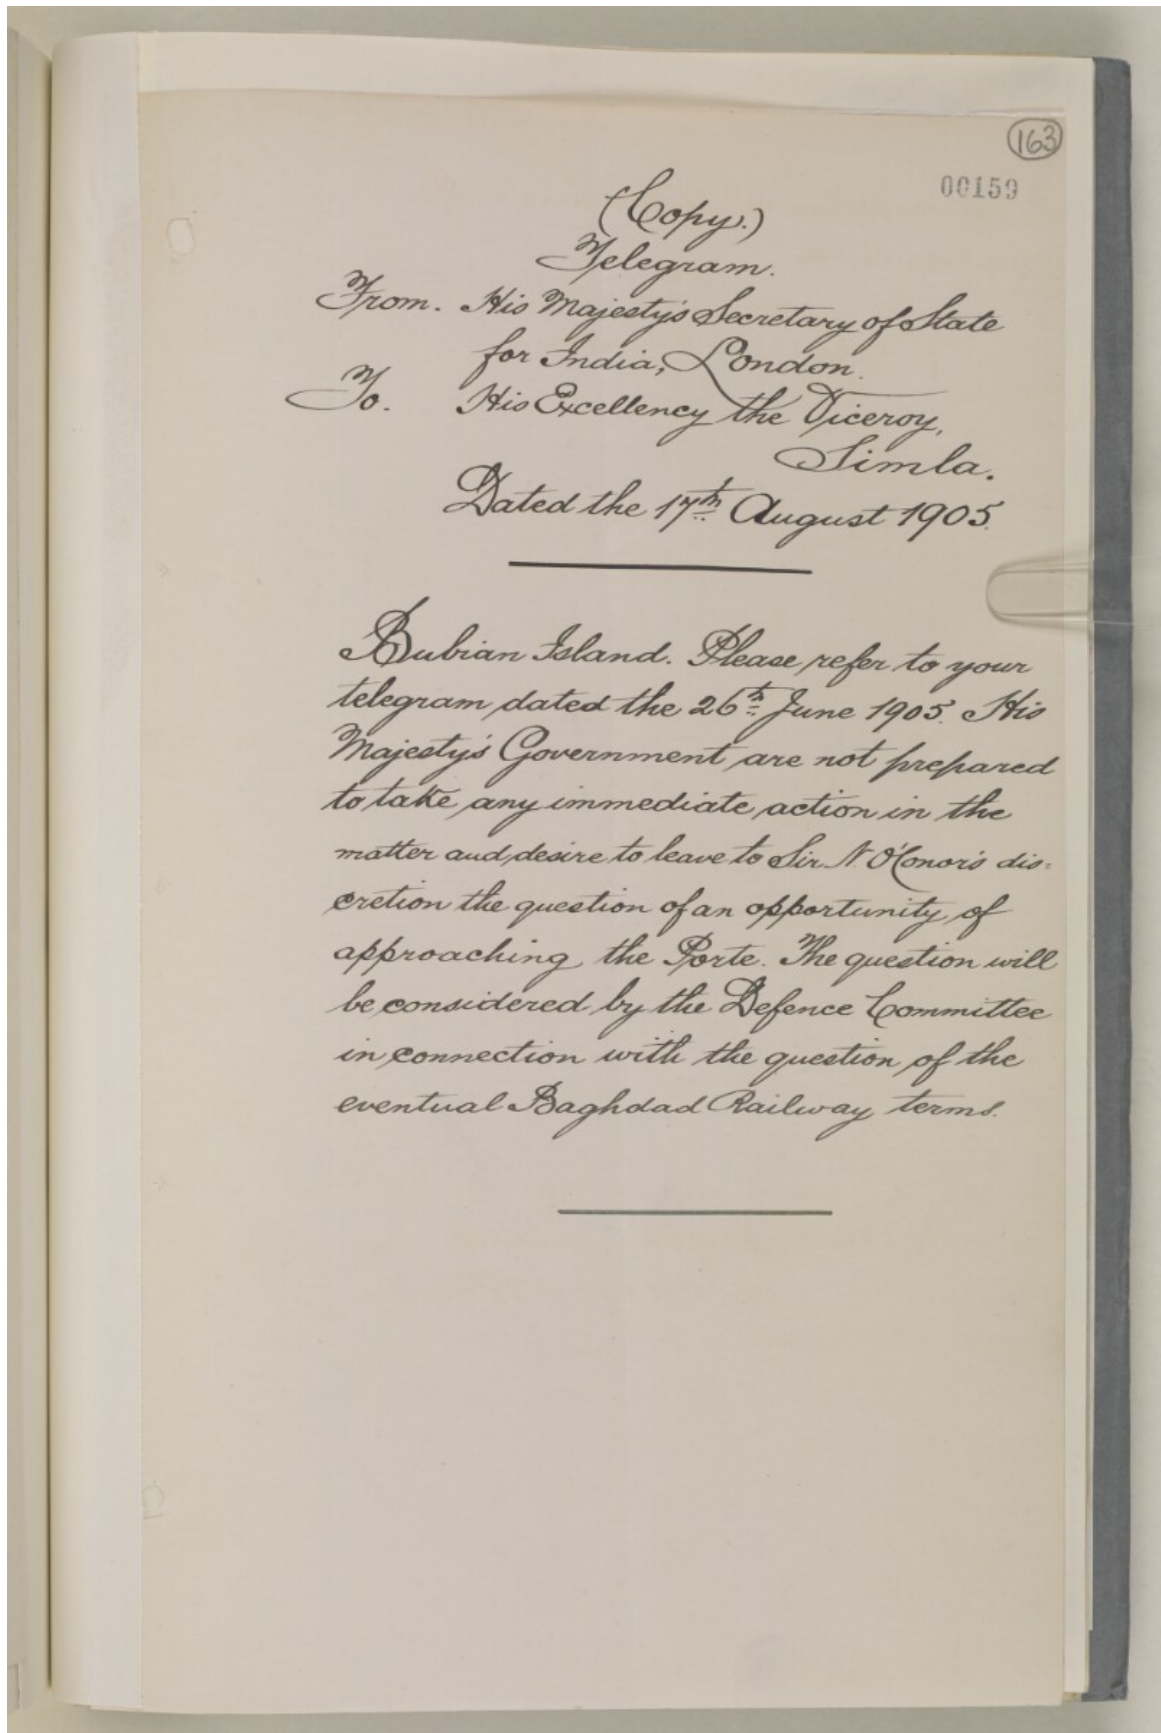 163
00159
(Copy.)
Telegram.
From. His Majesty's Secretary of State
for India, London.
To. His Excellency the Viceroy,
Simla.
Dated the 17th August 1905.
Bubian Island. Please refer to your
telegram dated the 26th June 1905. His
Majesty's Government are not prepared
to take any immediate action in the
matter and desire to leave to Sir N. O'Conor's dis-
cretion the question of an opportunity of
approaching the Porte. The question will
be considered by the Defence Committee
in connection with the question of the
eventual Baghdad Railway terms.